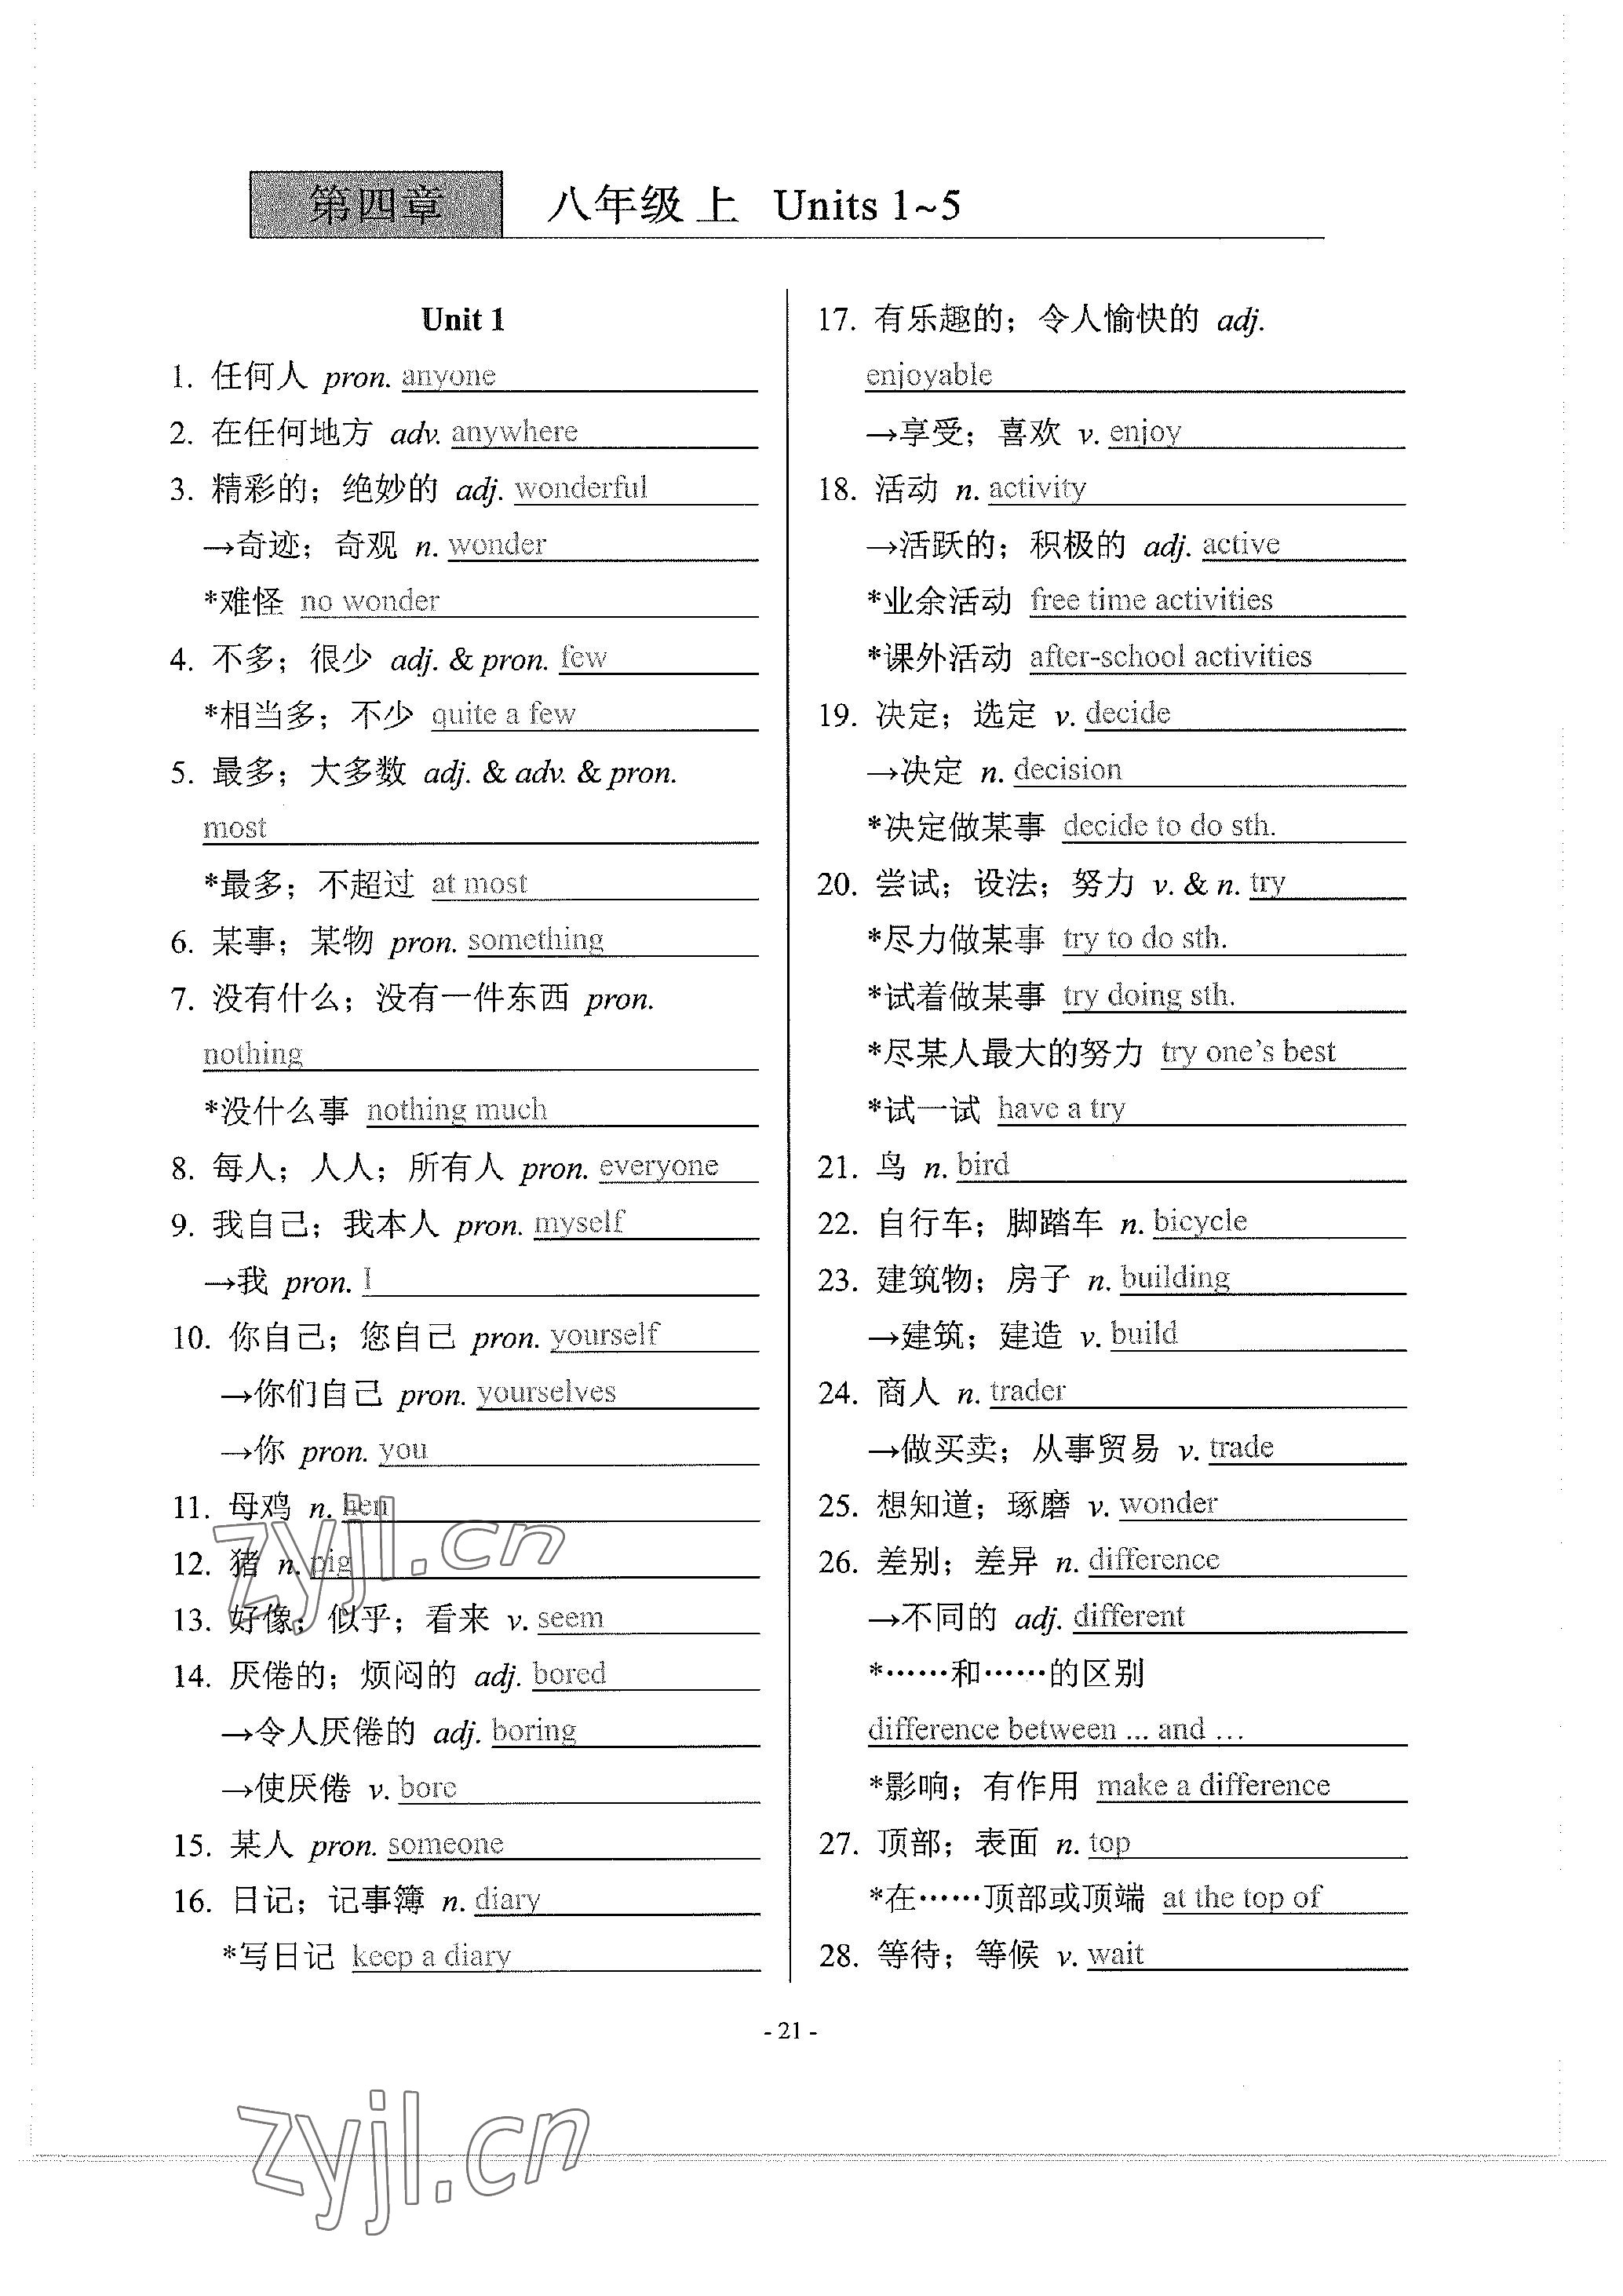 第四章 八年级 上 Units 1~5
Unit 1
1. 任何人 pron. anyone
2. 在任何地方 adv. anywhere
3. 精彩的；绝妙的 adj. wonderful
→奇迹；奇观 n. wonder
*难怪 no wonder
4. 不多；很少 adj. & pron. few
*相当多；不少 quite a few
5. 最多；大多数 adj. & adv. & pron.
most
*最多；不超过 at most
6. 某事；某物 pron. something
7. 没有什么；没有一件东西 pron.
nothing
*没什么事 nothing much
8. 每人；人人；所有人 pron. everyone
9. 我自己；我本人 pron. myself
→我 pron. I
10. 你自己；您自己 pron. yourself
→你们自己 pron. yourselves
→你 pron. you
11. 母鸡 n. hen
12. 猪 n. pig
13. 好像；似乎；看来 v. seem
14. 厌倦的；烦闷的 adj. bored
→令人厌倦的 adj. boring
→使厌倦 v. bore
15. 某人 pron. someone
16. 日记；记事簿 n. diary
*写日记 keep a diary
17. 有乐趣的；令人愉快的 adj.
enjoyable
→享受；喜欢 v. enjoy
18. 活动 n. activity
→活跃的；积极的 adj. active
*业余活动 free time activities
*课外活动 after-school activities
19. 决定；选定 v. decide
→决定 n. decision
*决定做某事 decide to do sth.
20. 尝试；设法；努力 v. & n. try
*尽力做某事 try to do sth.
*试着做某事 try doing sth.
*尽某人最大的努力 try one's best
*试一试 have a try
21. 鸟 n. bird
22. 自行车；脚踏车 n. bicycle
23. 建筑物；房子 n. building
→建筑；建造 v. build
24. 商人 n. trader
→做买卖；从事贸易 v. trade
25. 想知道；琢磨 v. wonder
26. 差别；差异 n. difference
→不同的 adj. different
*……和……的区别
difference between ... and ...
*影响；有作用 make a difference
27. 顶部；表面 n. top
*在……顶部或顶端 at the top of
28. 等待；等候 v. wait
zyjl.cn
- 21 -
zyjl.cn